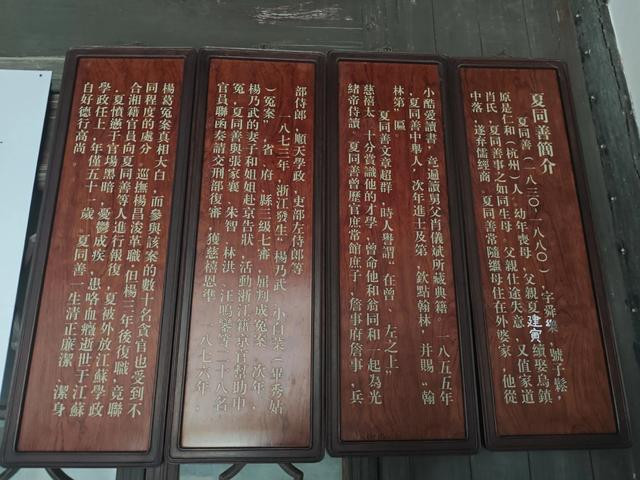 夏同善簡介
夏同善（一八三〇—一八八〇）字舜樂，號子鬆，
原是仁和（杭州）人。幼年喪母，父親夏建寅續娶烏鎮
肖氏，夏同善事之如同生母。父親仕途失意，又值家道
中落，遂弃儒經商。夏同善常隨繼母住在外婆家，他從
小酷愛讀書，竟遍讀舅父肖儀斌所藏典籍。一八五五年
，夏同善中舉人，次年進士及第，欽點翰林，并賜"翰
林第"匾。
夏同善文章超群，時人譽謂"在曾、左之上"
慈禧太 十分賞識他的才學，曾命他和翁同和一起為光
緒帝侍讀。夏同善曾歷官庶常館庶子，詹事府詹事，兵
部侍郎，順天學政，吏部左侍郎等
一八七三年，浙江發生"楊乃武 小白菜（畢秀姑
）冤案"，省、府、縣三級七審，屈判成冤案。次年，
楊乃武的妻子和姐姐赴京告狀，活動浙江籍京官幫助申
冤，夏同善與張家襄、朱智、林洪、汪鳴鑾等二十八名
官員聯函奏請交刑部復審，獲慈禧恩準。一八七六年，
楊葛冤案真相大白，而參與該案的數十名貪官也受到不
同程度的處分，巡撫楊昌浚革職。但楊三年後復職，竟聯
合湘籍官員向夏同善等人進行報復，夏被外放江蘇學政
，夏憤懣于官場黑暗，憂鬱成疾，患咯血癥逝世于江蘇
學政任上，年僅五十一歲。夏同善一生清正廉潔，潔身
自好德行高尚。